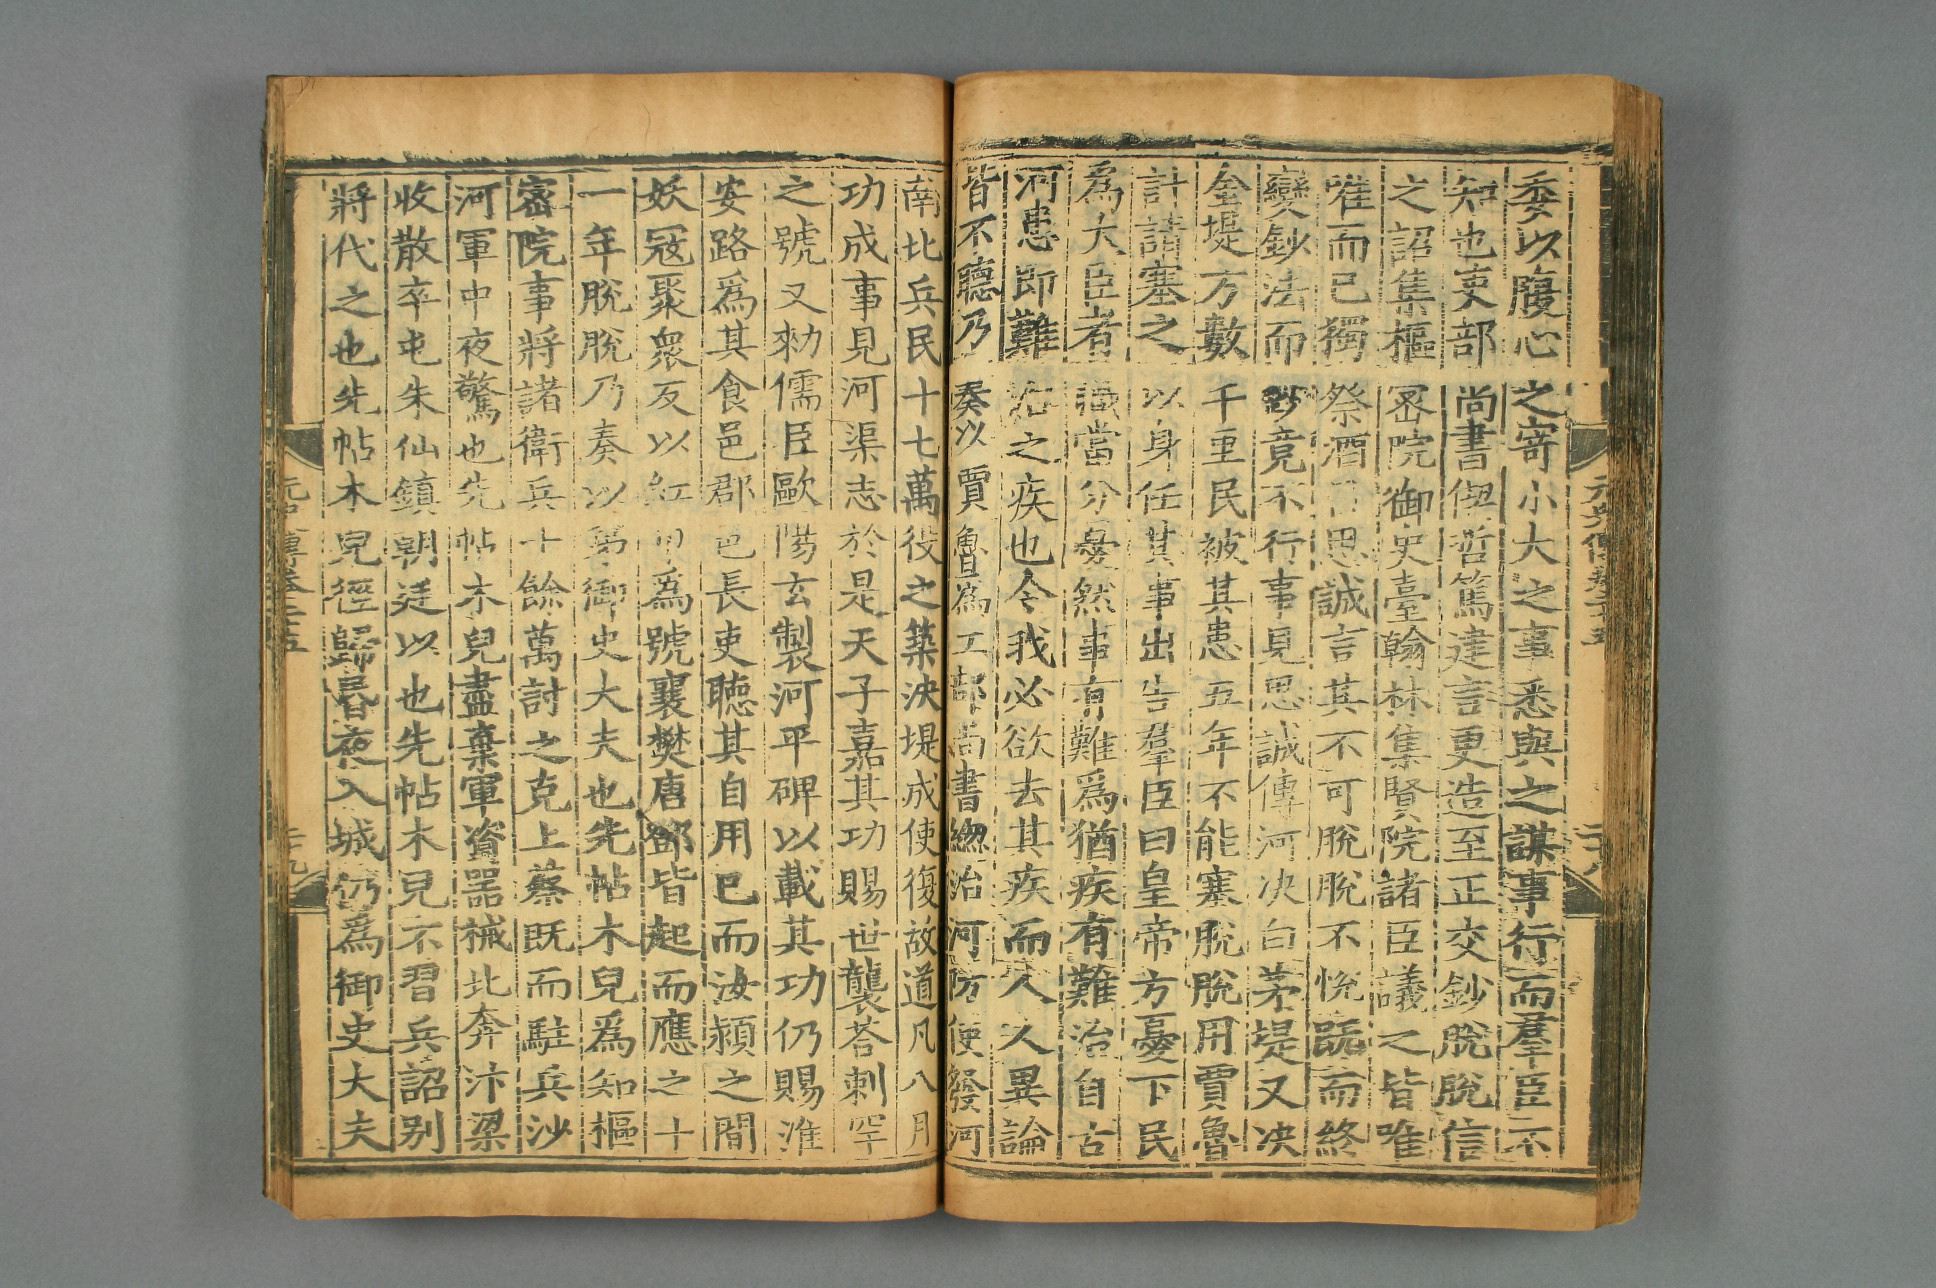 委以腹心之寄小大之事悉與之謀事行而羣臣不
知也吏部尚書偰哲篤建言更造至正交鈔脫脫信
之詔集樞密院御史臺翰林集賢院諸臣議之皆唯
唯而已獨祭酒呂思誠言其不可脫脫不悅旣而終
變鈔法而鈔竟不行事見思誠傳河决白茅堤又决
金堤方數千里民被其患五年不能塞脫脫用賈魯
計請塞之以身任其事出告羣臣曰皇帝方憂下民
爲大臣者職當分憂然事有難爲猶疾有難治自古
河患即難治之疾也今我必欲去其疾而人人異論
皆不聽乃奏以賈魯爲工部尚書緫治河防使發河
南北兵民十七萬役之築决堤成使復故道凡八月
功成事見河渠志於是天子嘉其功賜世襲荅剌罕
之號又勑儒臣歐陽玄製河平碑以載其功仍賜淮
安路爲其食邑郡邑長吏聽其自用已而汝潁之間
妖冦聚衆反以紅巾爲號襄樊唐鄧皆起而應之十
一年脫脫乃奏以弟御史大夫也先帖木兒爲知樞
密院事將諸衛兵十餘萬討之克上蔡旣而駐兵沙
河軍中夜驚也先帖木兒盡棄軍資器械北奔汴梁
收散卒屯朱仙鎮朝廷以也先帖木兒不習兵詔别
將代之也先帖木兒徑歸昏夜入城仍爲御史大夫
元史傳卷二十五
二十八
元史傳卷二十五
二十九